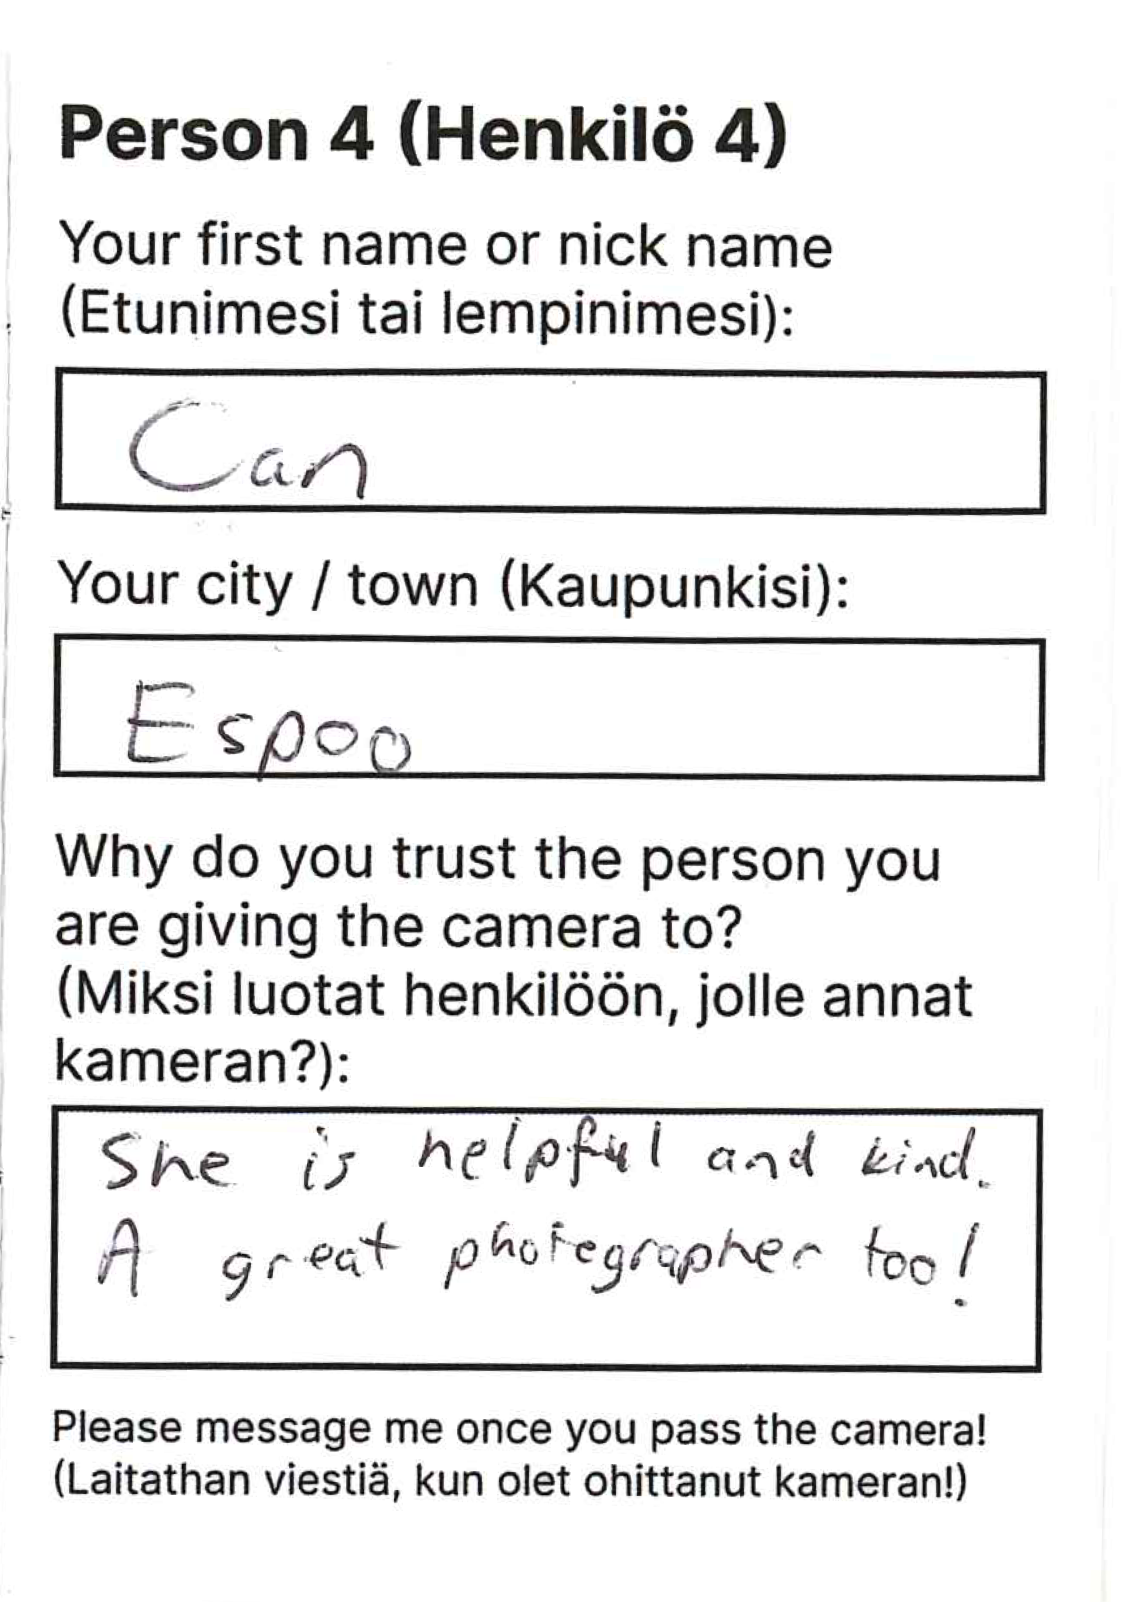 Person 4 (Henkilö 4)
Your first name or nick name
(Etunimesi tai lempinimesi):
Can
Your city / town (Kaupunkisi):
Espoo
Why do you trust the person you
are giving the camera to?
(Miksi luotat henkilöön, jolle annat
kameran?):
She is helpful and kind.
A great photographer too!
Please message me once you pass the camera!
(Laitathan viestiä, kun olet ohittanut kameran!)